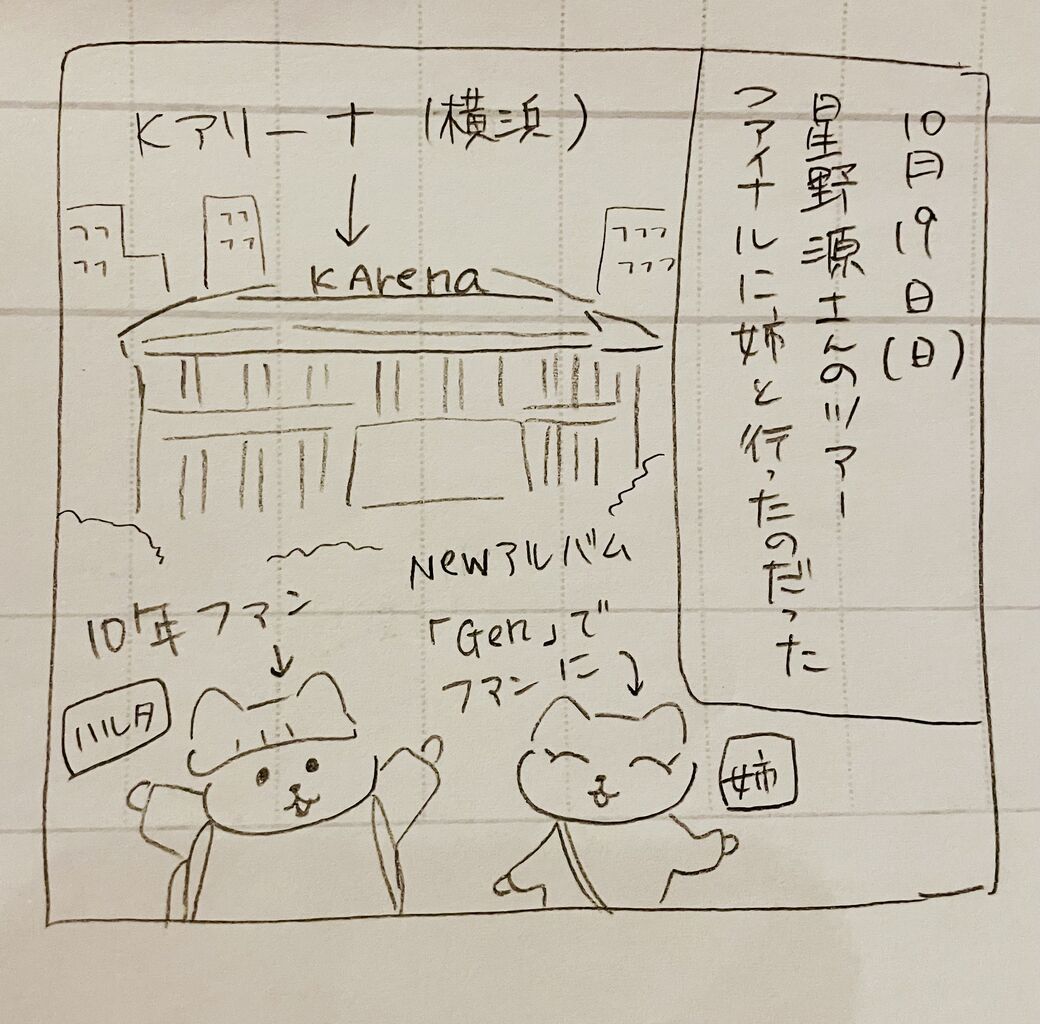 10月19日(日)
星野源さんのツアー
ファイナルに姉と行ったのだった
Kアリーナ (横浜)
K Arena
Newアルバム
「Gen」で
ファンに
10年ファン
ハルタ
姉